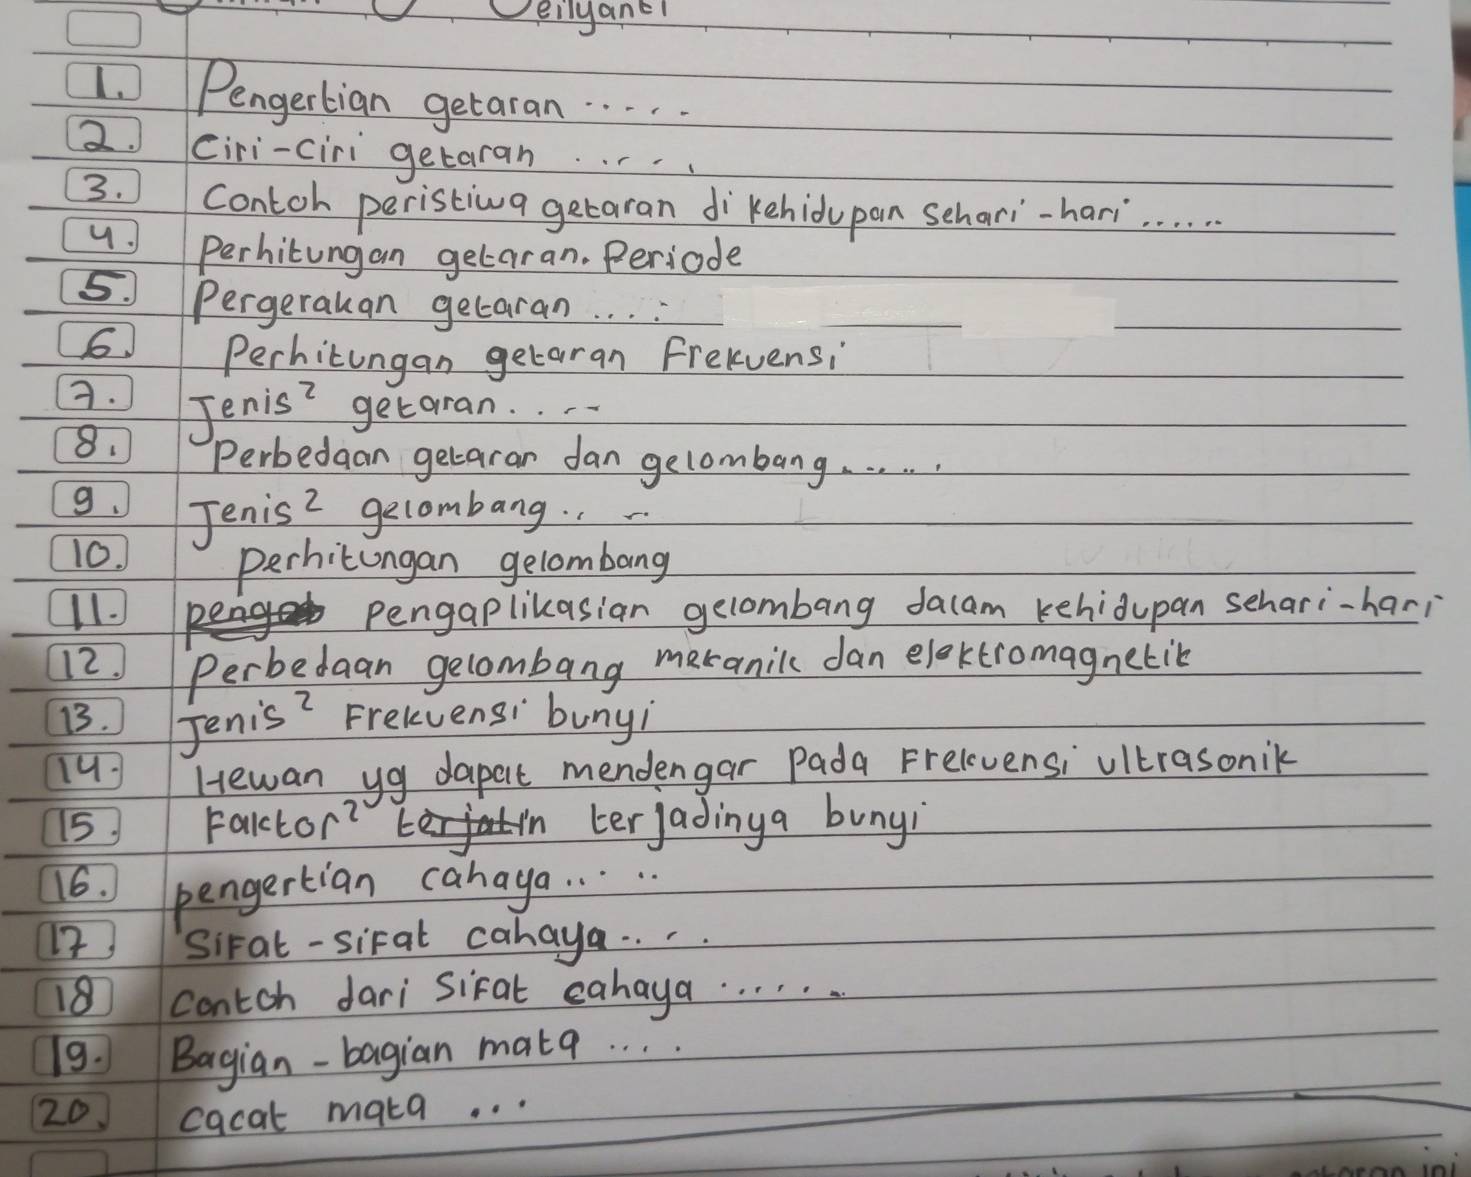 1. Pengertian getaran .....
2. Ciri-ciri getaran .....
3. Contoh peristiwa getaran di kehidupan sehari-hari ......
4. Perhitungan getaran. Periode
5. Pergerakan getaran ....
6. Perhitungan getaran Frekuensi
7. Jenis² getaran....
8. Perbedaan getaran dan gelombang......
9. Jenis² gelombang....
10. Perhitungan gelombang
11. pengap pengaplikasian gelombang dalam kehidupan sehari-hari
12. Perbedaan gelombang mekanik dan elektromagnetik
13. Jenis² Frekuensi bunyi
14. Hewan yg dapat mendengar Pada Frekuensi ultrasonik
15. Faktor² terjadinya bunyi
16. pengertian cahaya.....
17. Sifat-sifat cahaya....
18 Contoh dari Sifat cahaya ......
19. Bagian-bagian mata ....
20. cacat mata ...
ini